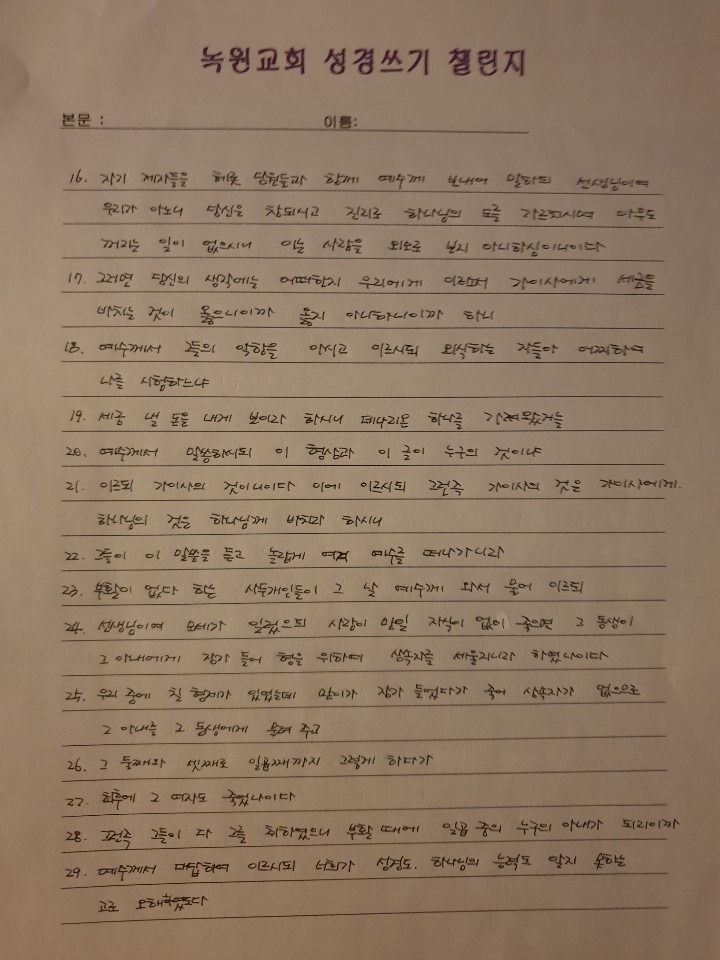 녹원교회 성경쓰기 챌린지
본문 : 이름:
16. 자기 제자들을 헤롯 당원들과 함께 예수께 보내어 말하되 선생님이여
우리가 아노니 당신은 참되시고 진리로 하나님의 도를 가르치시며 아무도
꺼리는 일이 없으시니 이는 사람을 외모로 보지 아니하심이니이다
17. 그러면 당신의 생각에는 어떠한지 우리에게 이르소서 가이사에게 세금을
바치는 것이 옳으니이까 옳지 아니하니이까 하니
18. 예수께서 그들의 악함을 아시고 이르시되 외식하는 자들아 어찌하여
나를 시험하느냐
19. 세금 낼 돈을 내게 보이라 하시니 데나리온 하나를 가져왔거늘
20. 예수께서 말씀하시되 이 형상과 이 글이 누구의 것이냐
21. 이르되 가이사의 것이니이다 이에 이르시되 그런즉 가이사의 것은 가이사에게.
하나님의 것은 하나님께 바치라 하시니
22. 그들이 이 말씀을 듣고 놀랍게 여겨 예수를 떠나가니라
23. 부활이 없다 하는 사두개인들이 그 날 예수께 와서 물어 이르되
24. 선생님이여 모세가 일렀으되 사람이 만일 자식이 없이 죽으면 그 동생이
그 아내에게 장가 들어 형을 위하여 상속자를 세울지니라 하였나이다
25. 우리 중에 칠 형제가 있었는데 맏이가 장가 들었다가 죽어 상속자가 없으므로
그 아내를 그 동생에게 물려 주고
26. 그 둘째와 셋째로 일곱째까지 그렇게 하다가
27. 최후에 그 여자도 죽었나이다
28. 그런즉 그들이 다 그를 취하였으니 부활 때에 일곱 중의 누구의 아내가 되리이까
29. 예수께서 대답하여 이르시되 너희가 성경도, 하나님의 능력도 알지 못하는
고로 오해하였도다